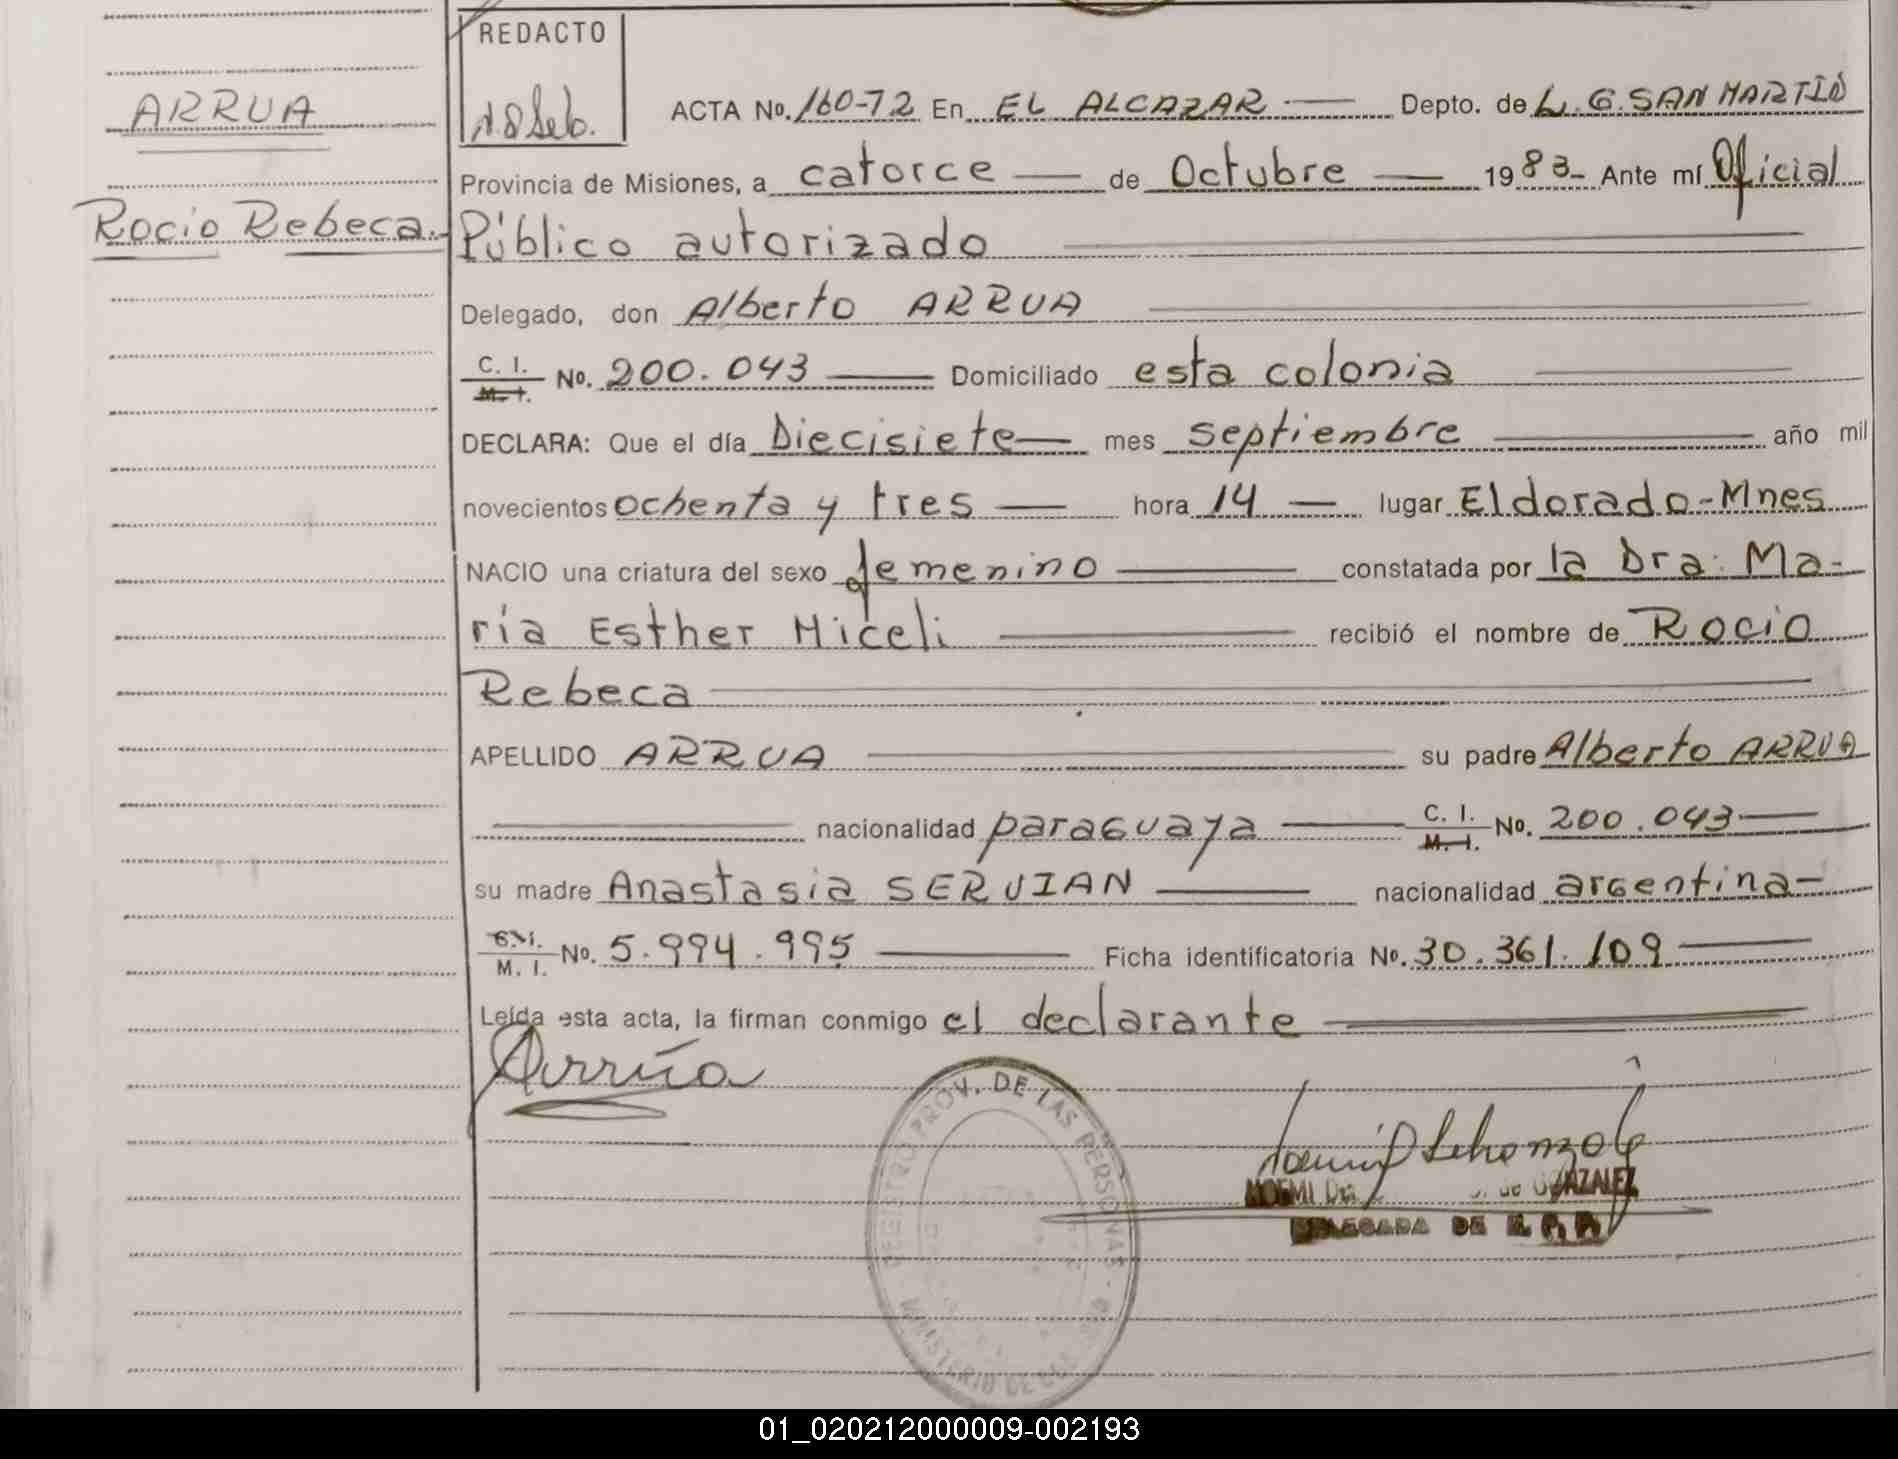 REDACTO
ARRUA
ACTA No. 160-72 En EL ALCAZAR Depto. de L. G. SAN MARTIN
Provincia de Misiones, a catorce de Octubre 1983- Ante mí Oficial
Rocio Rebeca.
Público autorizado
Delegado, don Alberto ARRUA
C. I.
M. I.
No. 200.043 Domiciliado esta colonia
DECLARA: Que el día Diecisiete mes septiembre año mil
novecientos ochenta y tres hora 14 lugar Eldorado-Mnes
NACIO una criatura del sexo femenino constatada por la Dra. Ma-
ría Esther Miceli recibió el nombre de Rocio
Rebeca
APELLIDO ARRUA su padre Alberto ARRUA
nacionalidad paraguaya C. I. M. I. No. 200.043
su madre Anastasia SERVIAN nacionalidad argentina
C. I. M. I. No. 5.994.995 Ficha identificatoria No. 30.361.109
Leída esta acta, la firman conmigo el declarante
Arrúa
REGISTRO PROV. DE LAS PERSONAS
MINISTERIO DE
NOEMI de GONZALEZ
DELEGADA DE R. P. P.
01_020212000009-002193